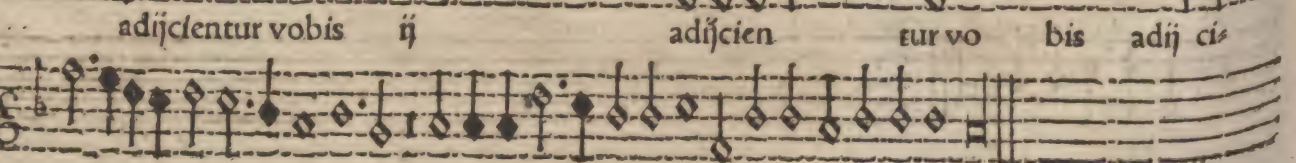 adijcientur vobis ij adijcien tur vo bis adij ci⸗